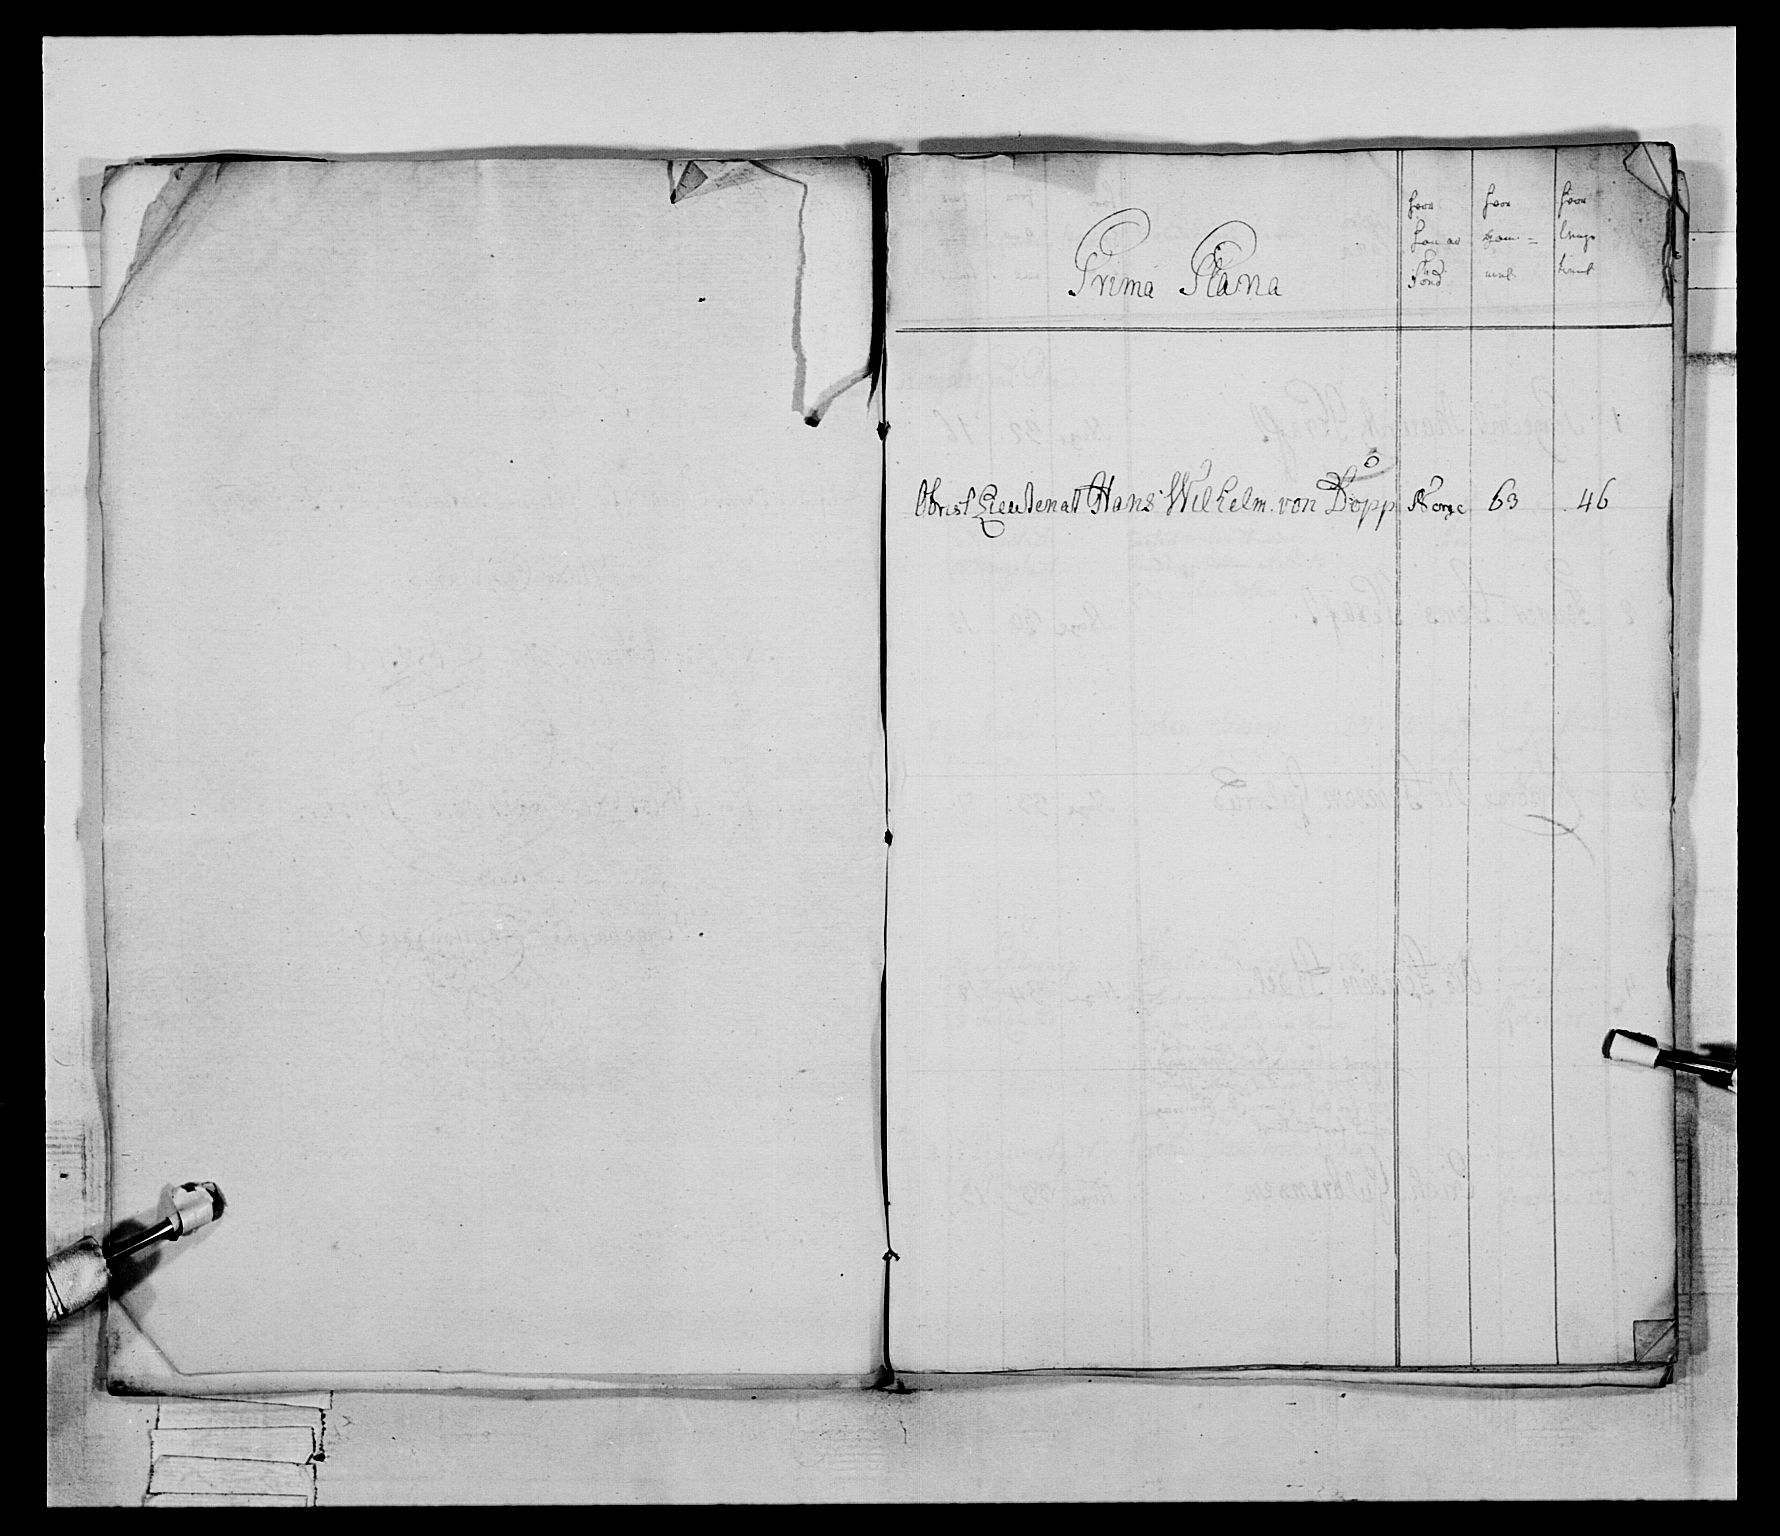 Prima Plana
hvor
han er
Föed
hvor
gam=
mel
hvor
lenge
tient
Obrist Lieutenat Hans Wilhelm von Döpp Norge 63 46